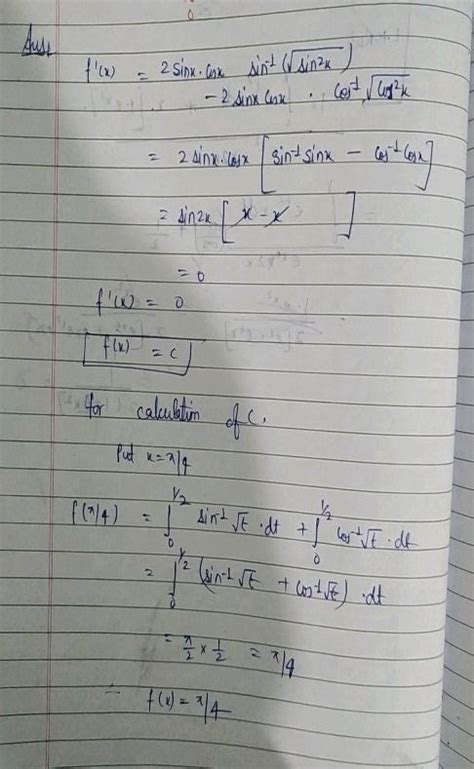 Ans:
f'(x) = 2 sinx. cosx sin⁻¹(√sin²x)
- 2 sinx cosx . cos⁻¹√cos²x
= 2 sinx. cosx [sin⁻¹ sinx - cos⁻¹ cosx]
= sin2x [x - x]
= 0
f'(x) = 0
f(x) = c
for calculation of C.
Put x = π/4
f(π/4) = ∫₀^1/2 sin⁻¹√t . dt + ∫₀^1/2 cos⁻¹√t . dt
= ∫₀^1/2 (sin⁻¹√t + cos⁻¹√t) . dt
= π/2 × 1/2 = π/4
f(x) = π/4